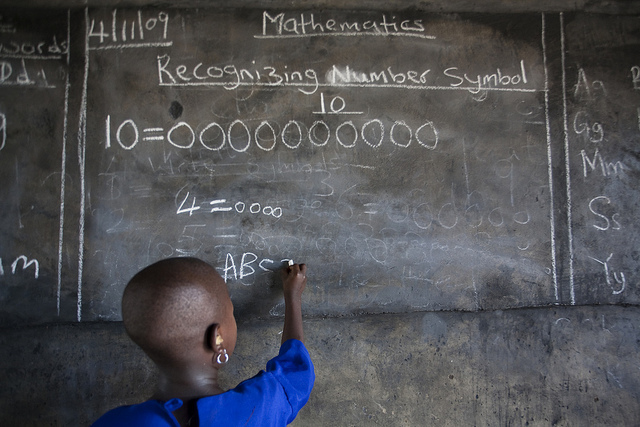 words
Dd
4/11/09
Mathematics
Recognizing Number Symbol
10
10=OOOOOOOOOO
4=oooo
ABC
m
Aa
Gg
Mm
Ss
Yy